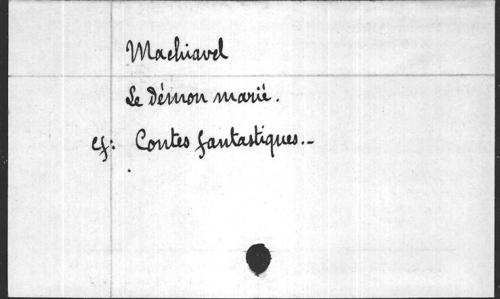 Machiavel
Le Démon marié.
cf: Contes fantastiques.-